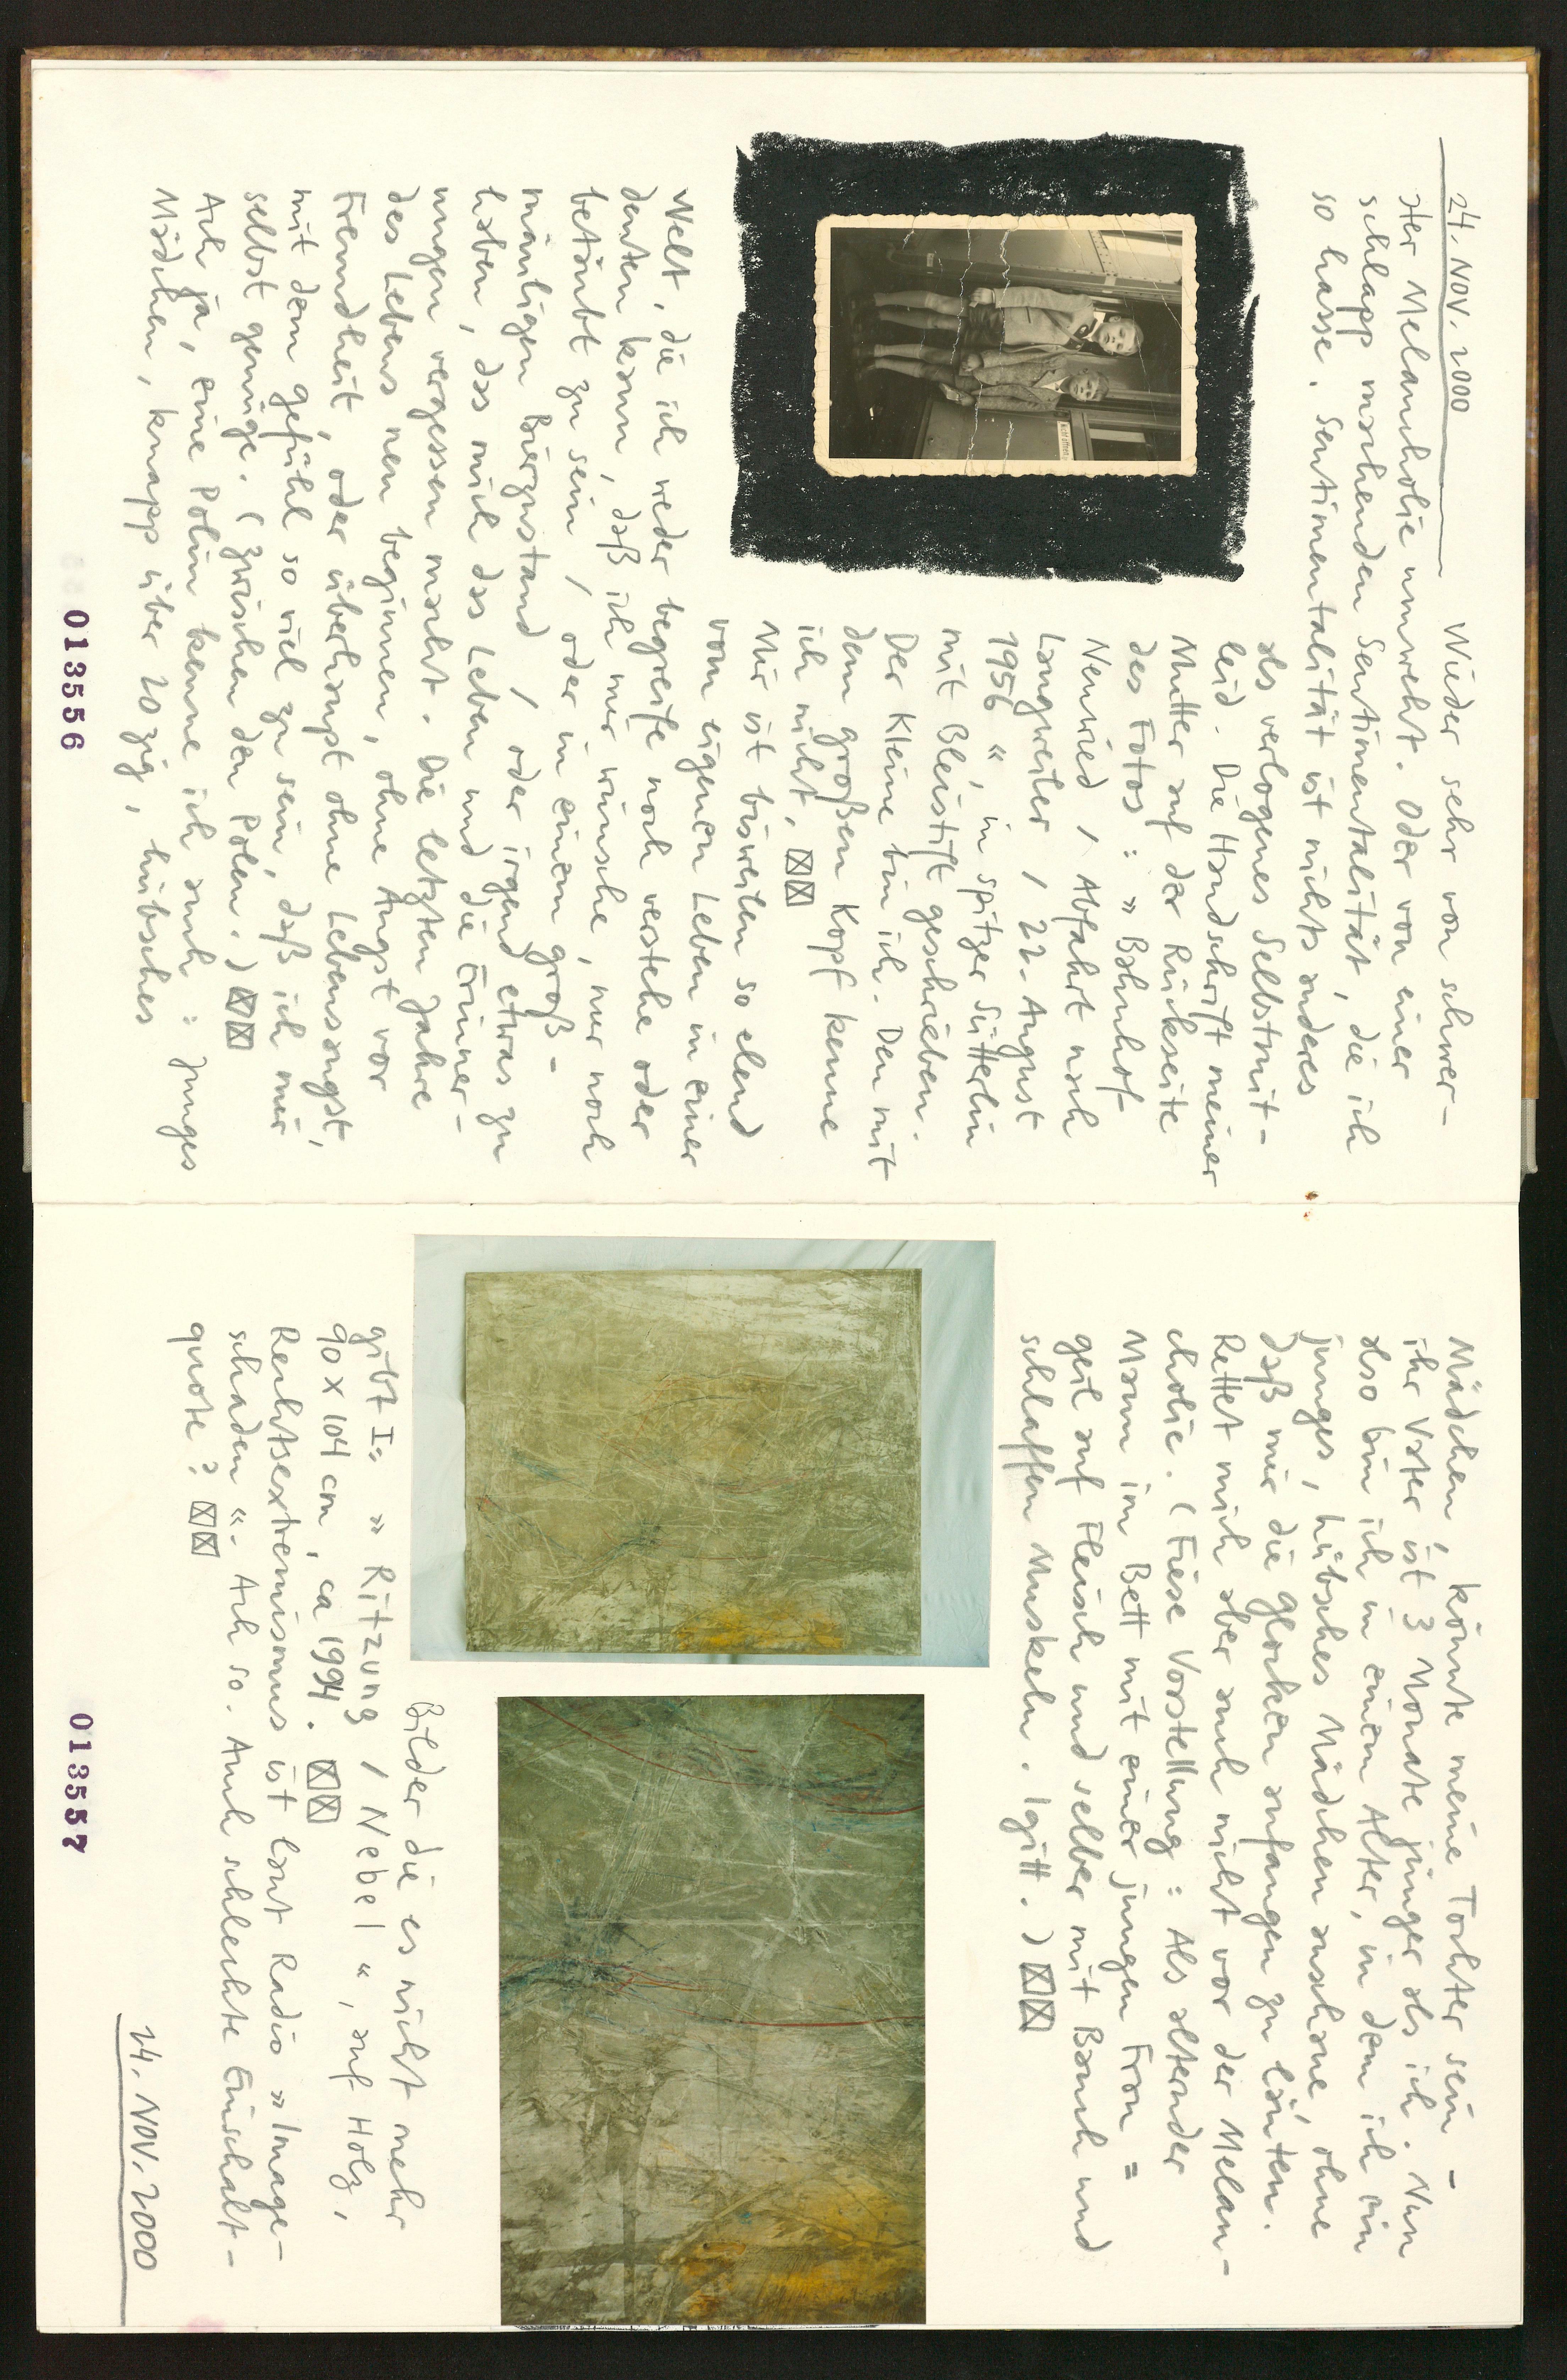 24. NOV. 2000
Wieder sehr von schwer-
ster Melancholie umweht. Oder von einer
schlapp machenden Sentimentalität, die ich
so hasse. Sentimentalität ist nichts anderes
als verlogenes Selbstmit-
leid. Die Handschrift meiner
Mutter auf der Rückseite
des Fotos: » Bahnhof
Neuwied / Abfahrt nach
Langweiler / 22. August
1956 «, in spitzer Sütterlin
mit Bleistift geschrieben.
Der Kleine bin ich. Den mit
dem großen Kopf kenne
ich nicht. ☒☒
Mir ist bisweilen so elend
vom eigenen Leben in einer
Welt, die ich weder begreife noch verstehe oder
deuten kann, daß ich mir wünsche, nur noch
betäubt zu sein / oder in einem groß-
mäuligen Bierzustand / oder irgend etwas zu
haben, das mich das Leben und die Erinner-
ungen vergessen macht. Die letzten Jahre
des Lebens neu beginnen, ohne Angst vor
Fremdheit, oder überhaupt ohne Lebensangst,
mit dem Gefühl so viel zu sein, daß ich mir
selbst genüge. (Zwischen den Polen.) ☒☒
Ach ja, eine Polin kenne ich auch: Junges
Mädchen, knapp über 20zig, hübsches
013556
Mädchen, könnte meine Tochter sein –
ihr Vater ist 3 Monate jünger als ich. Nun
also bin ich in einem Alter, in dem ich ein
junges, hübsches Mädchen anschaue, ohne
daß mir die Glocken anfangen zu läuten.
Rettet mich aber auch nicht vor der Melan-
cholie. (Fiese Vorstellung: Als alternder
Mann im Bett mit einer jungen Frau =
geil auf Fleisch und selber mit Bauch und
schlaffen Muskeln. Igitt.) ☒☒
Bilder die es nicht mehr
gibt I: » Ritzung / Nebel «, auf Holz,
90 x 104 cm, ca 1994. ☒☒
Rechtsextremismus ist laut Radio » Image-
schaden «. Ach so. Auch schlechte Einschalt-
quote? ☒☒
24. NOV. 2000
013557